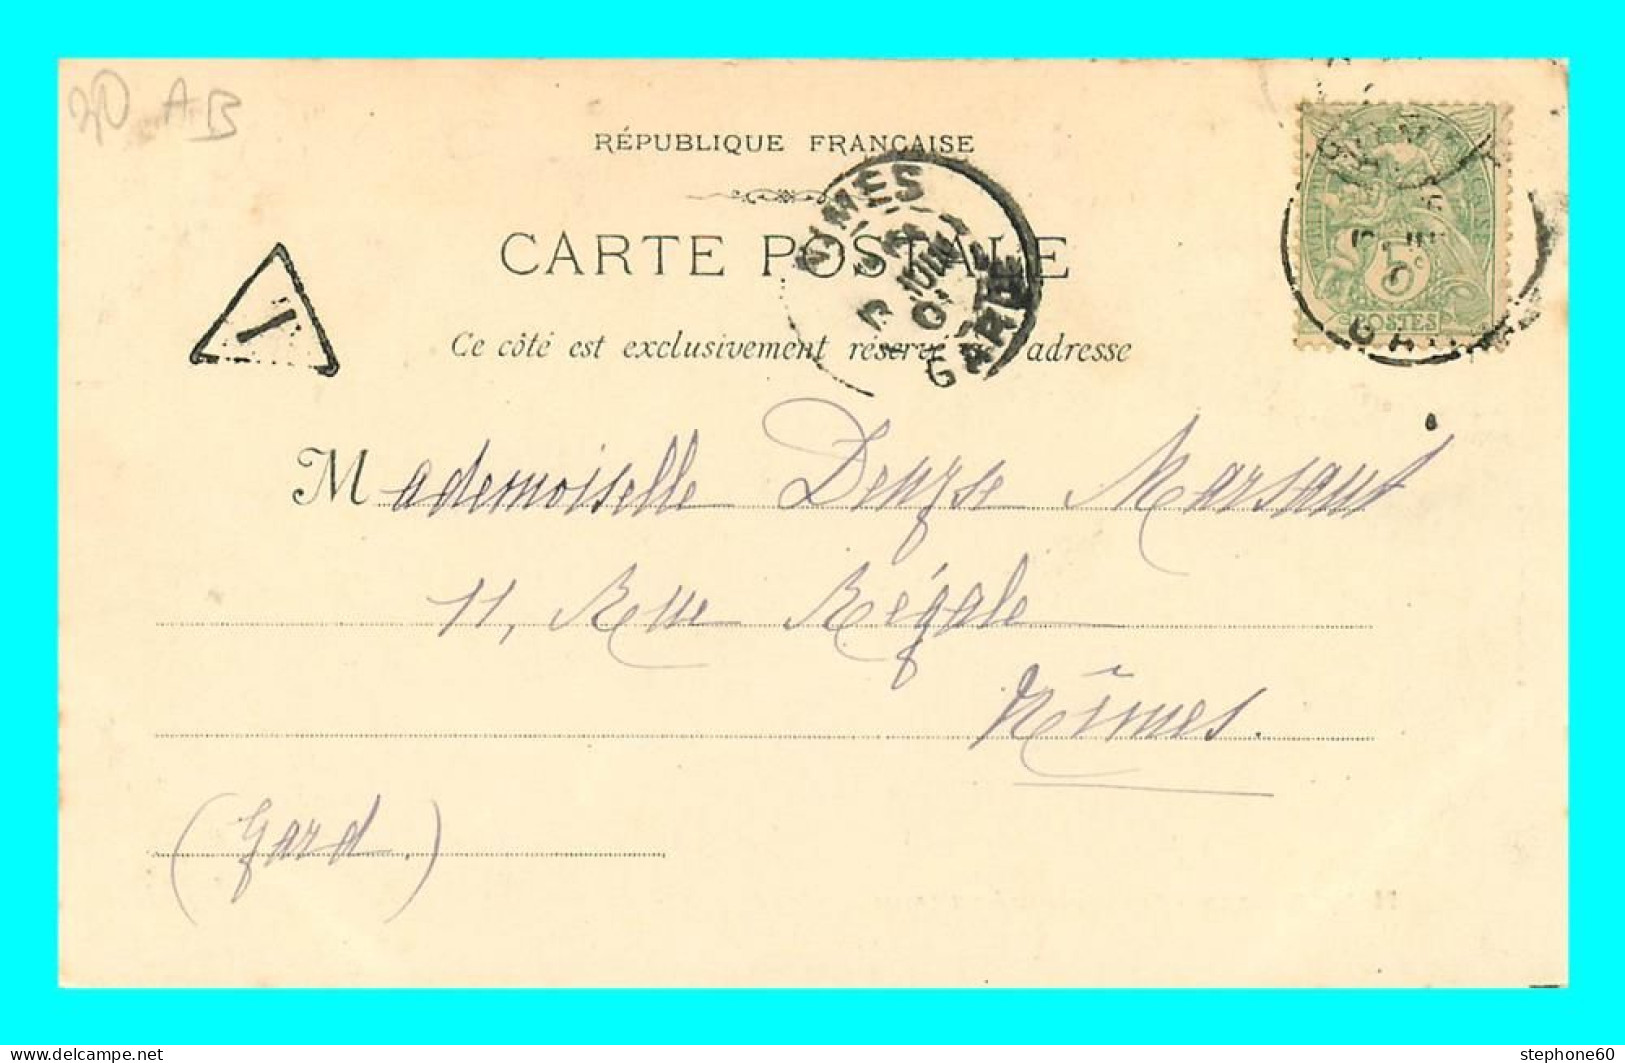 AB
RÉPUBLIQUE FRANÇAISE
NIMES
GARD
CARTE POSTALE
5
POSTES
Ce côté est exclusivement réservé à l'adresse
Mademoiselle Denyse Marsaut
11, Rue Régale
Nîmes.
(Gard)
delcampe.net
stephone60